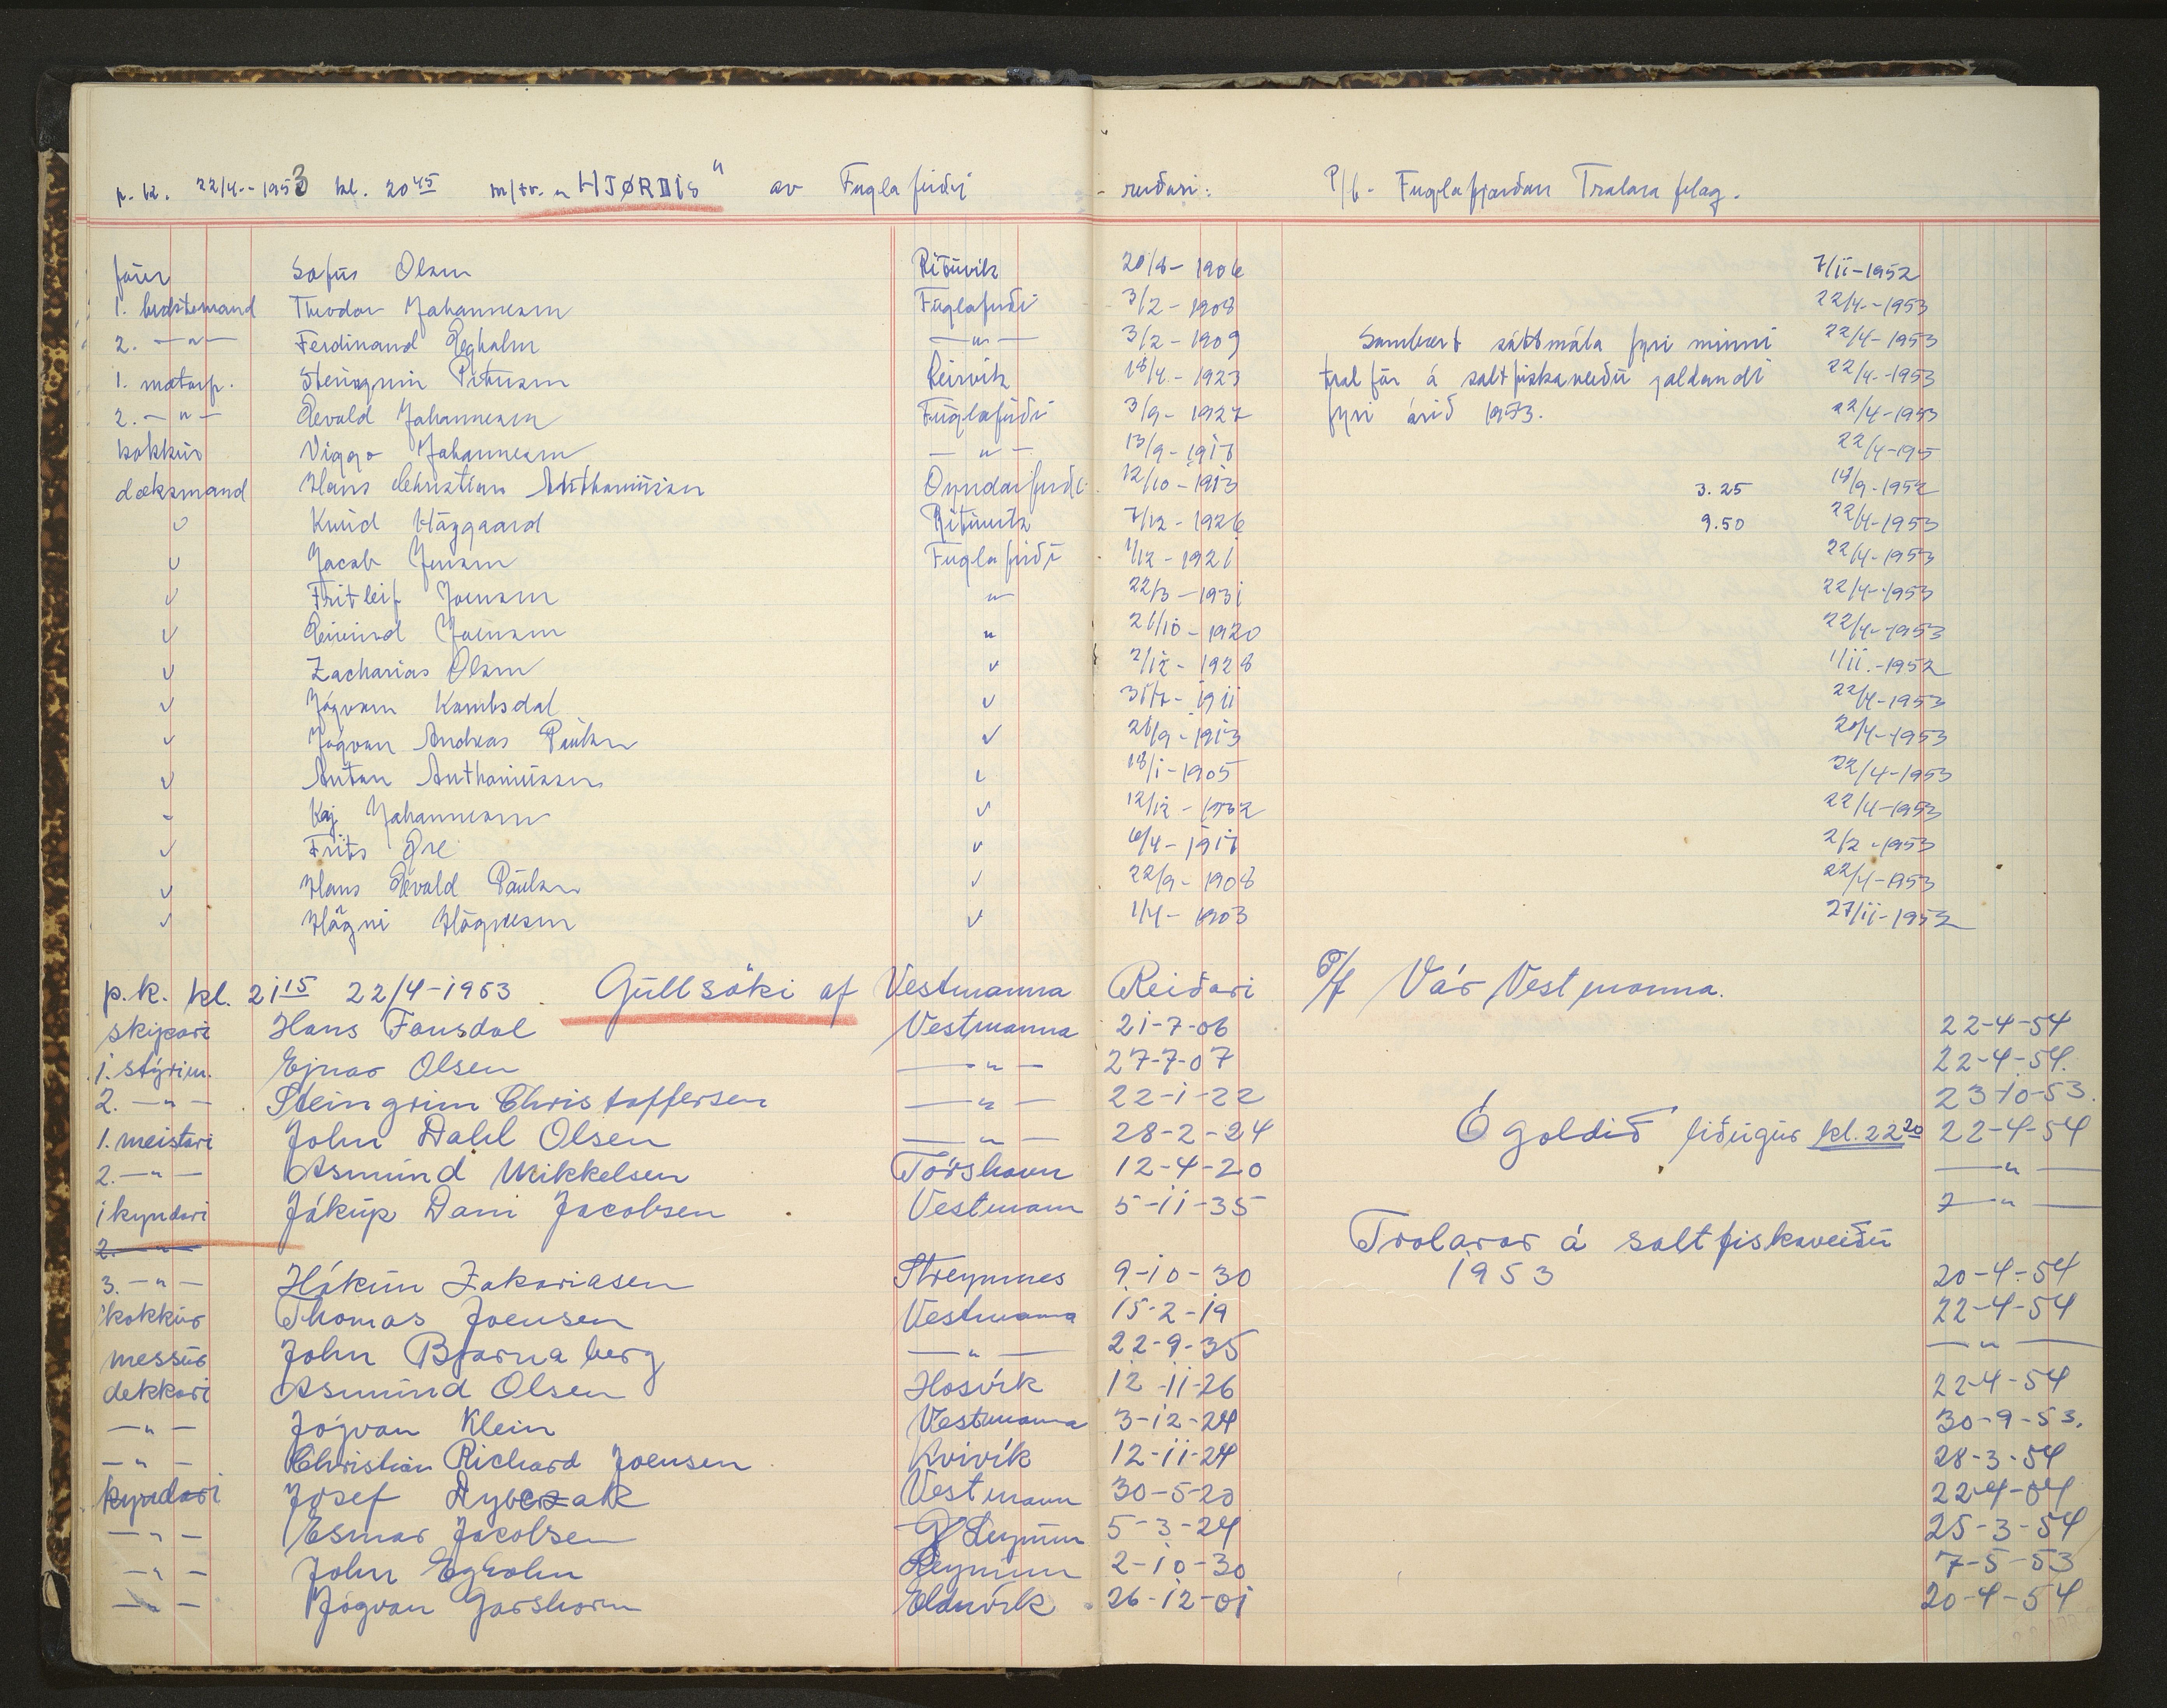 p. k. 22/4.-1953 kl. 20 45 m/tr. „HJØRDIS" av Fuglafirði - reiðari: P/f - Fuglafjarðar Trolara felag.
förer Sofus Olsen Rituvík 20/8-1906 7/11-1952
1. bedstemand Theodor Johannesen Fuglafirði 3/2-1908 22/4.-1953
2. —"— Ferdinand Egholm —"— 3/2-1909 Sambært sáttmála fyri minni 22/4-1953
1. motorp. Steingrim Petersen Leirvík 18/4.-1923 tral för á saltfiskaveiði galdandi 22/4.-1953
2. —"— Evald Johannesen Fuglafirði 3/9-1927 fyri árið 1953. 22/4-1953
kokkur Viggo Johannesen —"— 13/9-1917 22/4-195
dæksmand Hans Christian Anthoniusen Oyndarfirði 12/10-1913 3.25 19/9-1952
v Knud Højgaard Rituvík 7/12-1926 9.50 22/4-1953
v Jacob Jensen Fuglafirði 1/12-1921 22/4-1953
v Fritleif Joensen " 22/3-1931 22/4-1953
v Eivind Joensen " 21/10-1920 22/4-1953
v Zacharias Olsen v 2/12-1928 1/11.-1952
v Jógvan Kambsdal v 31/7-1911 22/4-1953
v Jógvan Andreas Poulsen v 28/9-1913 20/4-1953
v Anton Anthoniussen v 18/1-1905 22/4-1953
- Kaj Johannesen v 12/12-1932 22/4-1953
v Frits Øre v 6/4-1917 2/2-1953
v Hans Evald Poulsen v 22/9-1908 22/4-1953
v Høgni Høgnesen v 1/4-1903 27/11-1952
p.k. kl. 21 15 22/4-1953. Gullsóki af Vestmanna Reiðari P/f Vár Vestmanna.
skipari Hans Fonsdal Vestmanna 21-7-06 22-4-54
1. stýrim. Ejnar Olsen —"— 27-7-07 22-4-54.
2. —"— Steingrim Christoffersen —"— 22-1-22 23-10-53.
1. meistari John Dahl Olsen —"— 28-2-24 Ógoldið liðugur kl. 22 20 22-4-54
2. —"— Asmund Mikkelsen Tórshavn 12-4-20 —"—
1 kyndari Jákup Dani Jacobsen Vestmann 5-11-35 —"—
2. —"— Trolarar á saltfiskaveiðu
3. —"— Hákun Zakariasen Streymnes 9-10-30 1953 20-4-54
kokkur Thomas Joensen Vestmanna 15-2-19 22-4-54
messur John Bjarnaberg —"— 22-9-35 —"—
dekkari Asmund Olsen Hósvík 12-11-26 22-4-54
—"— Jógvan Klein Vestmanna 3-12-24 30-9-53.
—"— Christian Richard Joensen Kvivík 12-11-24 28-3-54
kyndari Josef Dybczak Vestmann 30-5-20 22-4-54
—"— Esmar Jacobsen Leynum 5-3-24 25-3-54
—"— John Egholm Leynum 2-10-30 7-5-53
—"— Jógvan Garshorn Elduvík 26-12-01 20-4-54